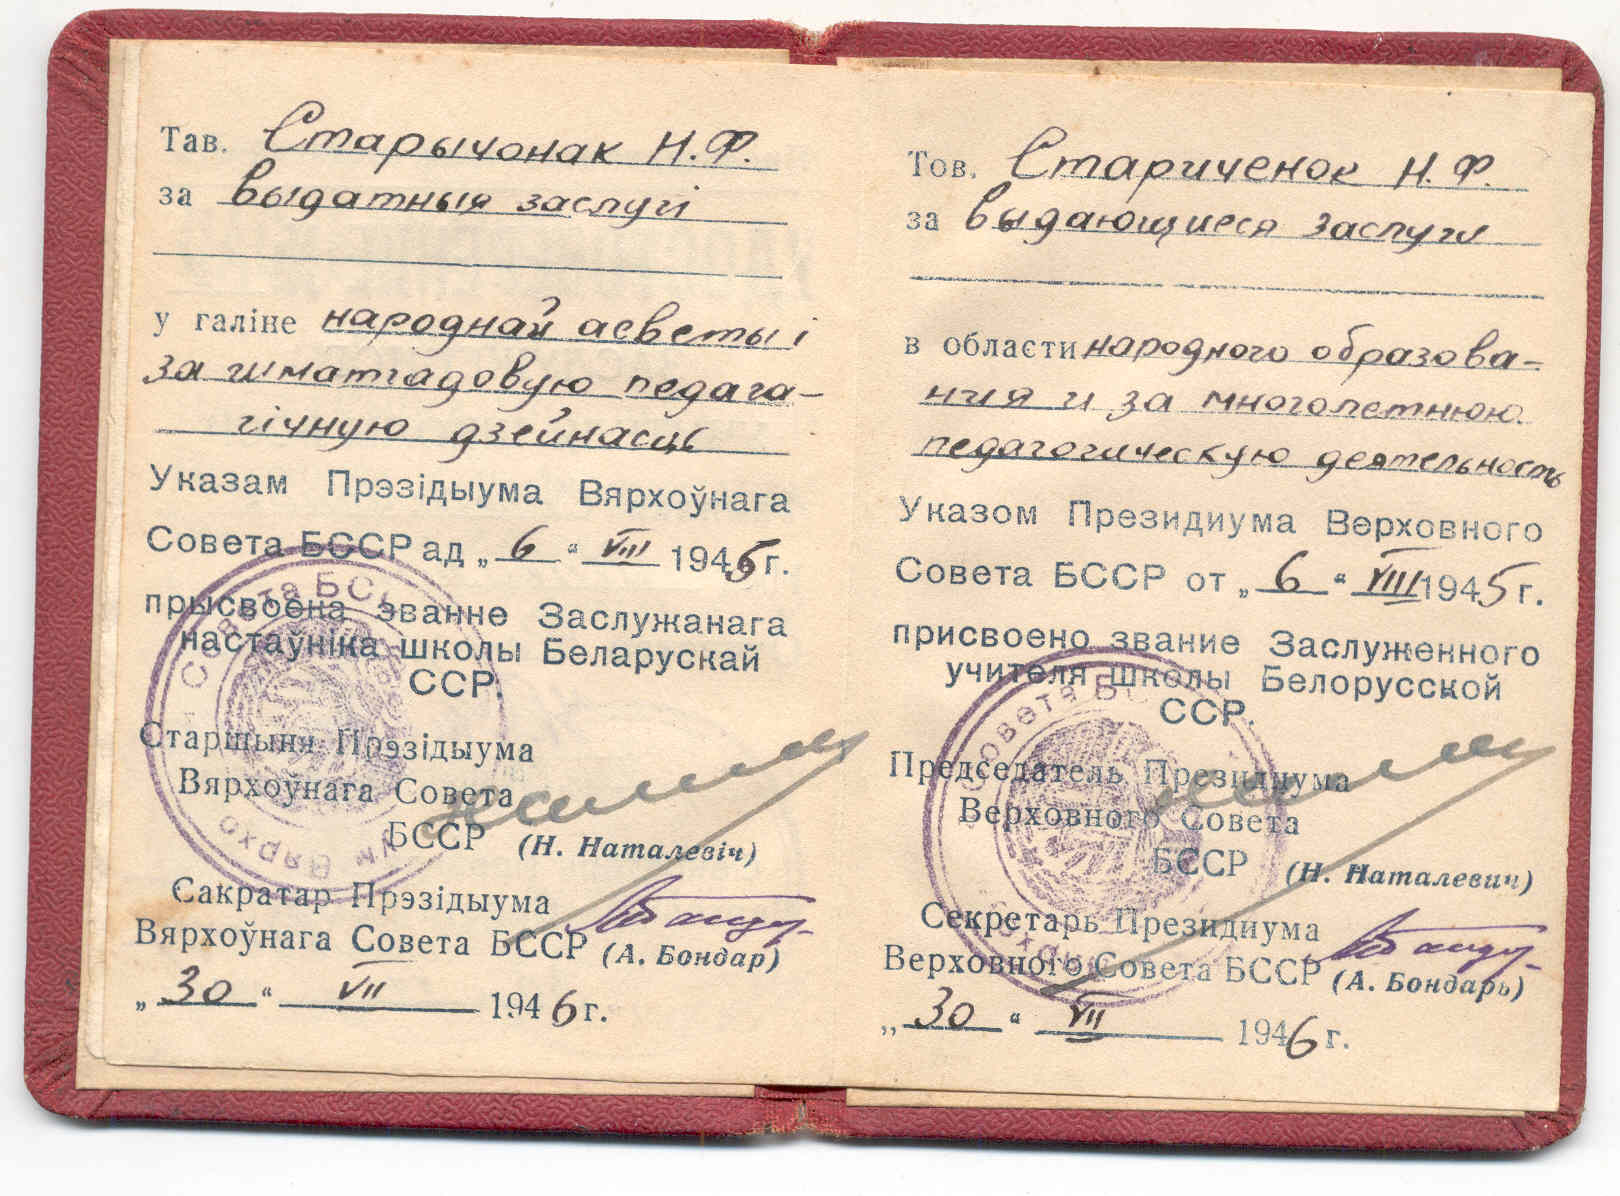 Тав. Старычонак Н.Ф.
за выдатныя заслугі
у галіне народнай асветы і
за шматгадовую педага-
гічную дзейнасць
Указам Прэзідыума Вярхоўнага
Совета БССР ад „6“ VIII 1945 г.
прысвоена званне Заслужанага
настаўніка школы Беларускай
ССР.
Старшыня Прэзідыума
Вярхоўнага Совета
БССР (Н. Наталевіч)
Сакратар Прэзідыума
Вярхоўнага Совета БССР (А. Бондар)
„30“ VII 1946 г.
Совета БСС
Вярхо
Тов. Стариченок Н.Ф.
за выдающиеся заслуги
в области народного образова-
ния и за многолетнюю
педагогическую деятельность
Указом Президиума Верховного
Совета БССР от „6“ VIII 1945 г.
присвоено звание Заслуженного
учителя школы Белорусской
ССР.
Председатель Президиума
Верховного Совета
БССР (Н. Наталевич)
Секретарь Президиума
Верховного Совета БССР (А. Бондарь)
„30“ VII 1946 г.
Совета